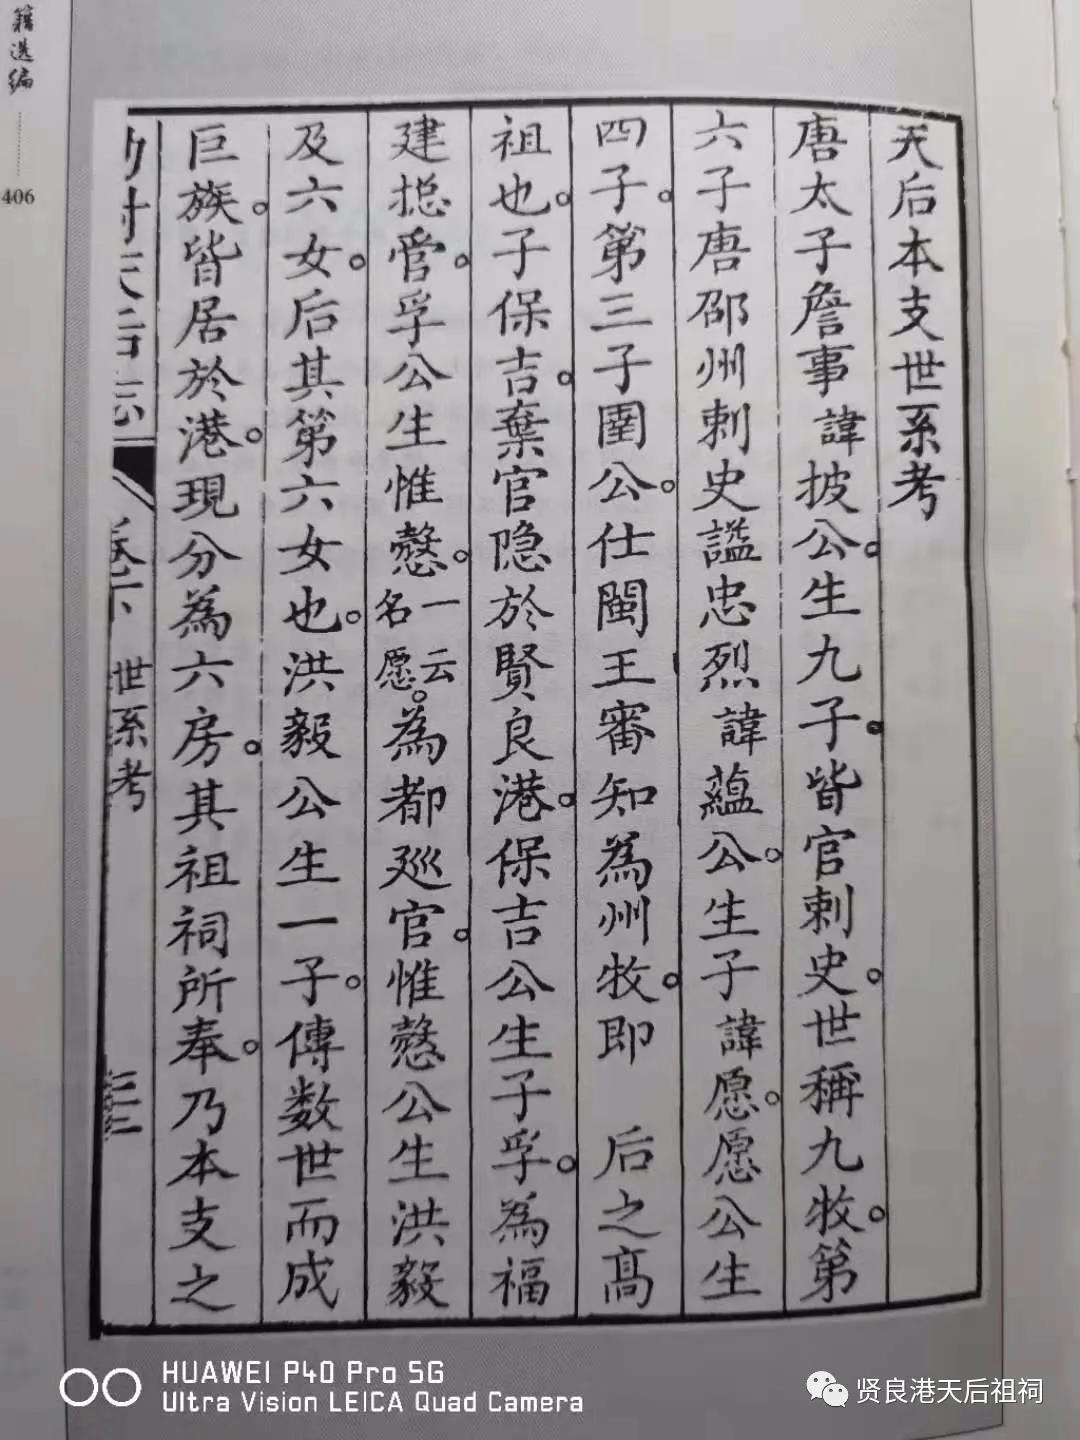 天后本支世系考
唐太子詹事諱披公。生九子。皆官刺史。世稱九牧。第
六子唐邵州刺史諡忠烈諱蘊公。生子諱愿。愿公生
四子。第三子圉公。仕閩王審知為州牧。即　后之高
祖也。子保吉。棄官隐於賢良港。保吉公生子孚。為福
建捴管。孚公生惟慤。一云名愿。為都巡官。惟慤公生洪毅
及六女。后其第六女也。洪毅公生一子。傳数世而成
巨族。皆居於港。現分為六房。其祖祠所奉。乃本支之
卷下 世系考
籍选编
406
HUAWEI P40 Pro 5G
Ultra Vision LEICA Quad Camera
贤良港天后祖祠